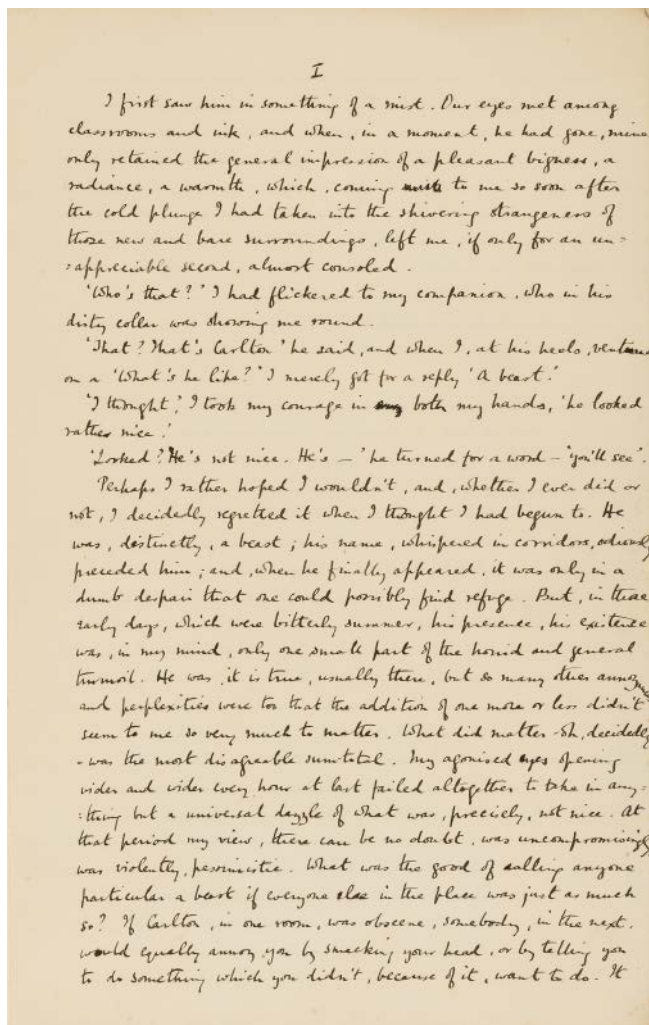 I
I first saw him in something of a mist. Our eyes met among
classrooms and ink, and when, in a moment, he had gone, mine
only retained the general impression of a pleasant bigness, a
radiance, a warmth, which, coming to me so soon after
the cold plunge I had taken into the shivering strangeness of
those new and bare surroundings, left me, if only for an un=
=appreciable second, almost consoled.
'Who's that?' I had flickered to my companion, who in his
dirty collar was showing me round.
'That? That's Carlton' he said, and when I, at his heels, ventured
on a 'What's he like?' I merely got for a reply 'A beast.'
'I thought', I took my courage in both my hands, 'he looked
rather nice.'
'Looked? He's not nice. He's – ' he turned for a word – 'you'll see'.
Perhaps I rather hoped I wouldn't, and, whether I ever did or
not, I decidedly regretted it when I thought I had begun to. He
was, distinctly, a beast; his name, whispered in corridors, odiously
preceded him; and, when he finally appeared, it was only in a
dumb despair that one could possibly find refuge. But, in those
early days, which were bitterly summer, his presence, his existence
was, in my mind, only one small part of the horrid and general
turmoil. He was, it is true, usually there, but so many other annoyances
and perplexities were too that the addition of one more or less didn't
seem to me so very much to matter. What did matter – oh, decidedly
– was the most disagreable sum-total. My agonised eyes opening
wider and wider every hour at last failed altogether to take in any=
=thing but a universal dazzle of what was, precisely, not nice. At
that period my view, there can be no doubt, was uncompromisingly,
was violently, pessimistic. What was the good of calling anyone
particular a beast if everyone else in the place was just as much
so? If Carlton, in one room, was obscene, somebody, in the next,
would equally annoy you by smacking your head, or by telling you
to do something which you didn't, because of it, want to do. It